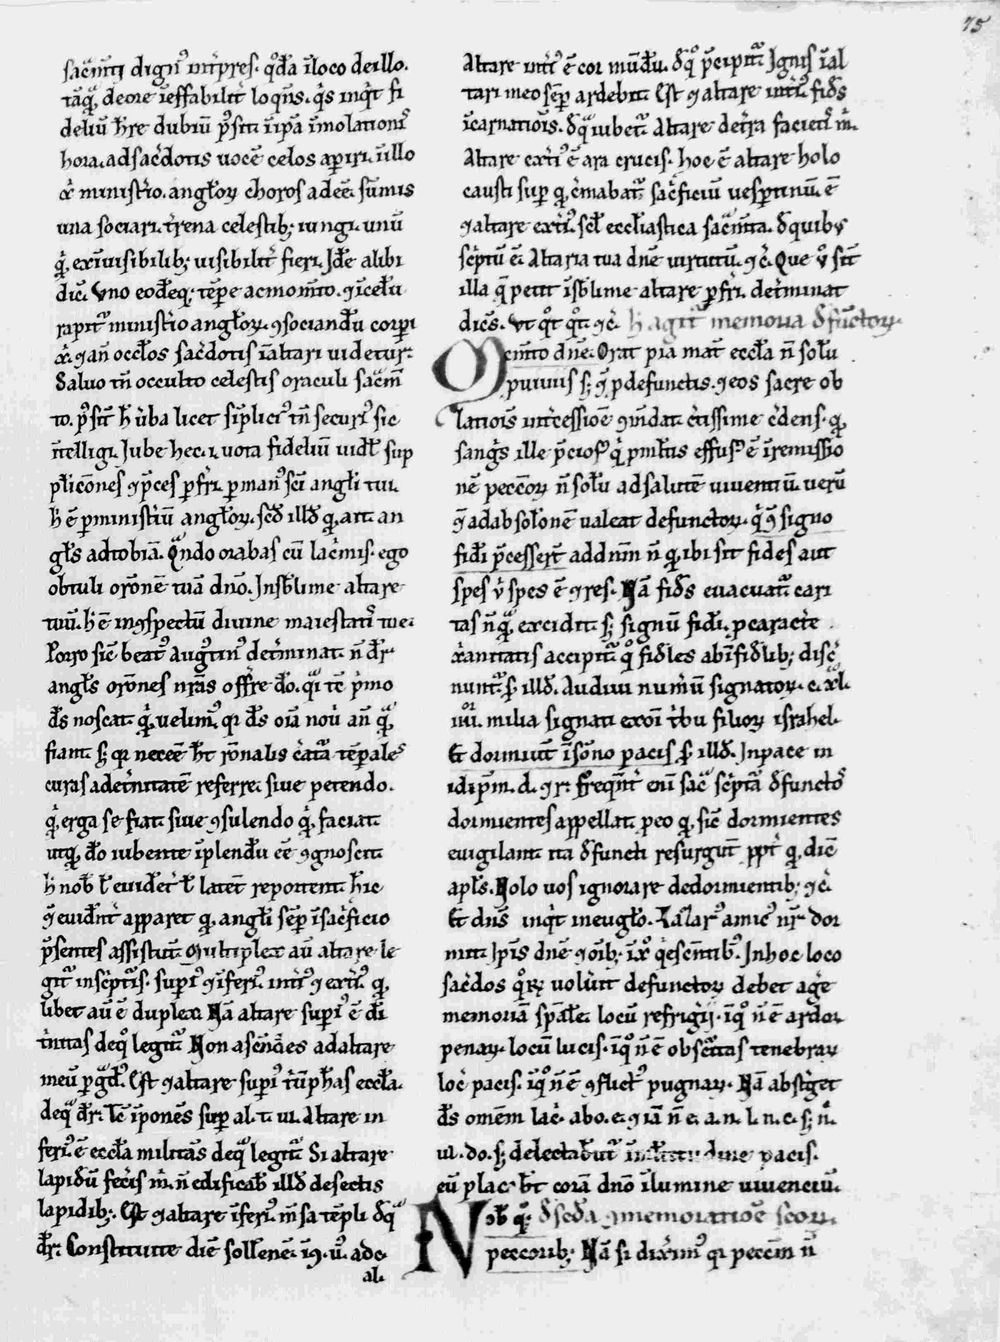 75
sac̄m̄ti dignꝰ int̄p̄res. q̊dā ī loco de illo.
tāq̄ꝫ de ore īeffabilit̄ loq̄ns. q̇s inq̇t fi
deliū h̄re dubiū p̄sit ī ip̄a īmolationis
hora. ad sac̄dotis uocē celos ap̄iri. ī illo
xp̄i minist̄io. angl̄oꝝ choros adeē. sūmis
una sociari. t̄rena celestibꝫ iungi. unū
q̇ꝫ ex īuisibilibꝫ uisibilit̄ fieri. Idē alibi
dic̄. Uno eodēqꝫ tēp̄e ac mom̄to. ⁊ ī celū
rapit̄ minist̄io angl̄oꝝ. ꝯsociandū corp̄i
xp̄i. ⁊ an̄ ocłos sac̄dotis ī altari uidetur.
Saluo tn̄ occulto celestis oraculi sac̄m̄
to. p̄sūt h̄ uba licet simplicit̄ tn̄ securiꝰ sic
ītelligi. Iube hec .i. uota fideliū uidł sup
plic̄ones ⁊ p̄ces ꝑfr̄i. ꝑ manꝰ sc̄i angłi tui.
h̄ ē ꝑ minist̄iū angl̄oꝝ. scdm̄ illđ qꝫ ait an
głs ad tobiā. Q̄ndo orabas cū lac̄mis. ego
obtuli or̄onē tuā dn̄o. In sb̄lime altare
tuū. h̄ ē in ꝯspectū diuine maiestatis tue.
Porro sic̄ beatꝰ Augustinꝰ det̄minat. n̄ dr̄
angłs or̄ones nr̄as offr̄e đo. q̄i tc̄ p̄mo
đs noscat q̇ꝫ uelimꝰ. qi đs oīa nouit an̄ q̄ꝫ
fiant. sꝫ qꝫ necēe ht̄ rōnalis c̄ata tēp̄ales
curas ad et̄nitatē referre. siue petendo.
q̇ꝫ erga se fiat. siue ꝯsulendo q̇ꝫ faciat
utqꝫ đo iubente īplendū eē ꝯgnoscit.
h̄ nob̄ uł euident̄ uł latent̄ reportent. hīc
⁊ euident̄ apparet qꝫ angłi semp̄ ī sac̄ficio
p̄sentes assistūt. Multiplex aū altare le
git̄ in sc̄ptis. supiꝰ ⁊ īferiꝰ. int̄iꝰ ⁊ ext̄iꝰ. qꝫ
libet aū ē duplex. Nā altare supiꝰ ē di
t̄nitas de q̊ legit̄ Non ascēdes ad altare
meū ꝑ g̊dꝰ. Est ⁊ altare supiꝰ t̄ūphās eccła.
de q̄ dr̄. Tc̄ īponēs sup̄ al. t. ui. Altare in
feriꝰ ē eccła militās de q̄ legit̄ Si altare
lapidū fecis m̄. n̄ edificab̄ illđ de sectis
lapidibꝫ. Est ⁊ altare īferiꝰ m̄sa tēpli đ q̄
dr̄. Constituite diē sollēnē ī ꝯ. u. adc̄.
al.
Altare int̄iꝰ ē cor mūdū. đ q̊ p̄cipit̄ Ignis ī al
tari meo semp̄ ardebit. Est ⁊ altare int̄iꝰ fiđs
īcarnationis. đ q̄ iubet̄ Altare de t̄ra facietis m̄.
Altare ext̄iꝰ ē ara crucis. hoc ē altare holo
causti sup̄ qꝫ c̄mabat̄ sac̄ficiū uesp̄tinū. ē
⁊ altare ext̄iꝰ. scł eccłiastica sac̄m̄ta. đ quibꝰ
sc̄ptū ē. Altaria tua dn̄e uirtutū. ⁊c̄. Que ů sīt
illa q̄ petit ī sb̄lime altare ꝑfr̄i. det̄minat
dicēs. Ut q̊t q̊t. ⁊c̄. h̄ agit̄ memoria đfūctoꝝ.
Mem̄to dn̄e. Orat pia mat̄ eccła n̄ solū
p uiuis sꝫ ⁊ p defunctis. ⁊ eos sacre ob
lationis int̄cessione ꝯm̄dat. c̄tissime c̄dens. qꝫ
sang̊s ille p̄ciosꝰ q̇ p multis effusꝰ ē ī remissio
nē peccōꝝ n̄ solū ad salutē uiuentiū. ueru
⁊ ad absolōnē ualeat defunctoꝝ. q̇ cū signo
fidi p̄cesserūt ad dn̄m n̄ qꝫ ibi sit fides aut
spes ů spes ē ⁊ res. Nā fiđs euacuat̄ cari
tas nūq̄ꝫ excidit. sꝫ signū fidi. p caracte
xp̄ianitatis accipit̄ q̊ fiđles ab īfiđlibꝫ disc̄
nunt̄ sꝫ illđ. Audiui num̄ū signatoꝝ. c. xł.
iiii. milia signati ex oī t̄bu filioꝝ israhel.
Et dormiūt ī sōno pacis sꝫ illđ. In pace in
idip̄m. d. ⁊ r. freq̄nt̄ eni sac̄ sc̄ptā đfunctos
dormientes appellat. p eo qꝫ sic̄ dormientes
euigilant. ita đfuncti resurgūt ppt̄ qꝫ dic̄
apłs. Nolo uos ignorare de dormientibꝫ ⁊c̄.
Et dn̄s inq̇t in euglo. Lazarꝰ amicꝰ nr̄ dor
mit. Ip̄is dn̄e ⁊ oībꝫ ī xp̄o q̇escentibꝰ. In hoc loco
sac̄dos q̊ꝝ uolūit defunctoꝝ debet age
memoriā spāłe. locū refrigij. ī q̊ n̄ ē ardor
penaꝝ. locū lucis. ī q̊ n̄ ē obsc̄itas tenebraꝝ
loc̄ pacis. ī q̊ n̄ ē ꝯflictꝰ pugnaꝝ. Nā abst̄get
đs omēm lac̄. ab o. e. ⁊ iā n̄ e. a. n. l. n. c. sꝫ n.
ul. do. sꝫ delectabūt̄ in multitudine pacis.
cū plac̄ebt corā dn̄o ī lumine uiuenciū.
Nob̄ qꝫ. đ scđa ꝯmemoratiōe sc̄oꝝ.
peccoribꝫ. Nā si dixim̄ꝰ qi peccm̄ n̄